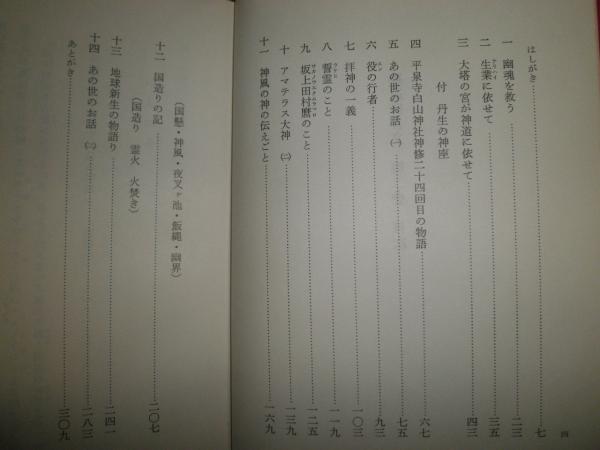 はしがき……七
一 幽魂を救う……二三
二 生業に依せて……三五
三 大塔の宮が神道に依せて……四三
付 丹生の神座
四 平泉寺白山神社神修二十四回目の物語……六七
五 あの世のお話 (一)……七五
六 役の行者……九三
七 拝神の一義……一〇三
八 誓霊のこと……一一九
九 坂上田村麿のこと……一二五
十 アマテラス大神 (二)……一三九
十一 神風の神の伝えごと……一六九
四
十二 国造りの記……二〇七
(国懸・神風・夜叉ヶ池・飯縄・幽界)
(国造り 霊火 火焚き)
十三 地球新生の物語り……二四一
十四 あの世のお話 (二)……二八三
あとがき……三〇九